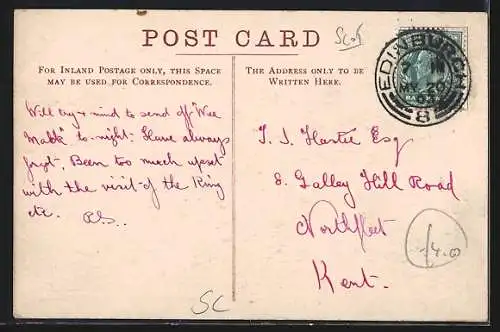 POST CARD
FOR INLAND POSTAGE ONLY, THIS SPACE
MAY BE USED FOR CORRESPONDENCE.
Will try & mind to send off "Wee
to-night. Have always
forgt. Been too much upset
with the visit of the King
etc.
THE ADDRESS ONLY TO BE
WRITTEN HERE.
EDINBURGH
8
T. S. Hastie Esq
8. Galley Hill Road
Northfleet
Kent.
SC